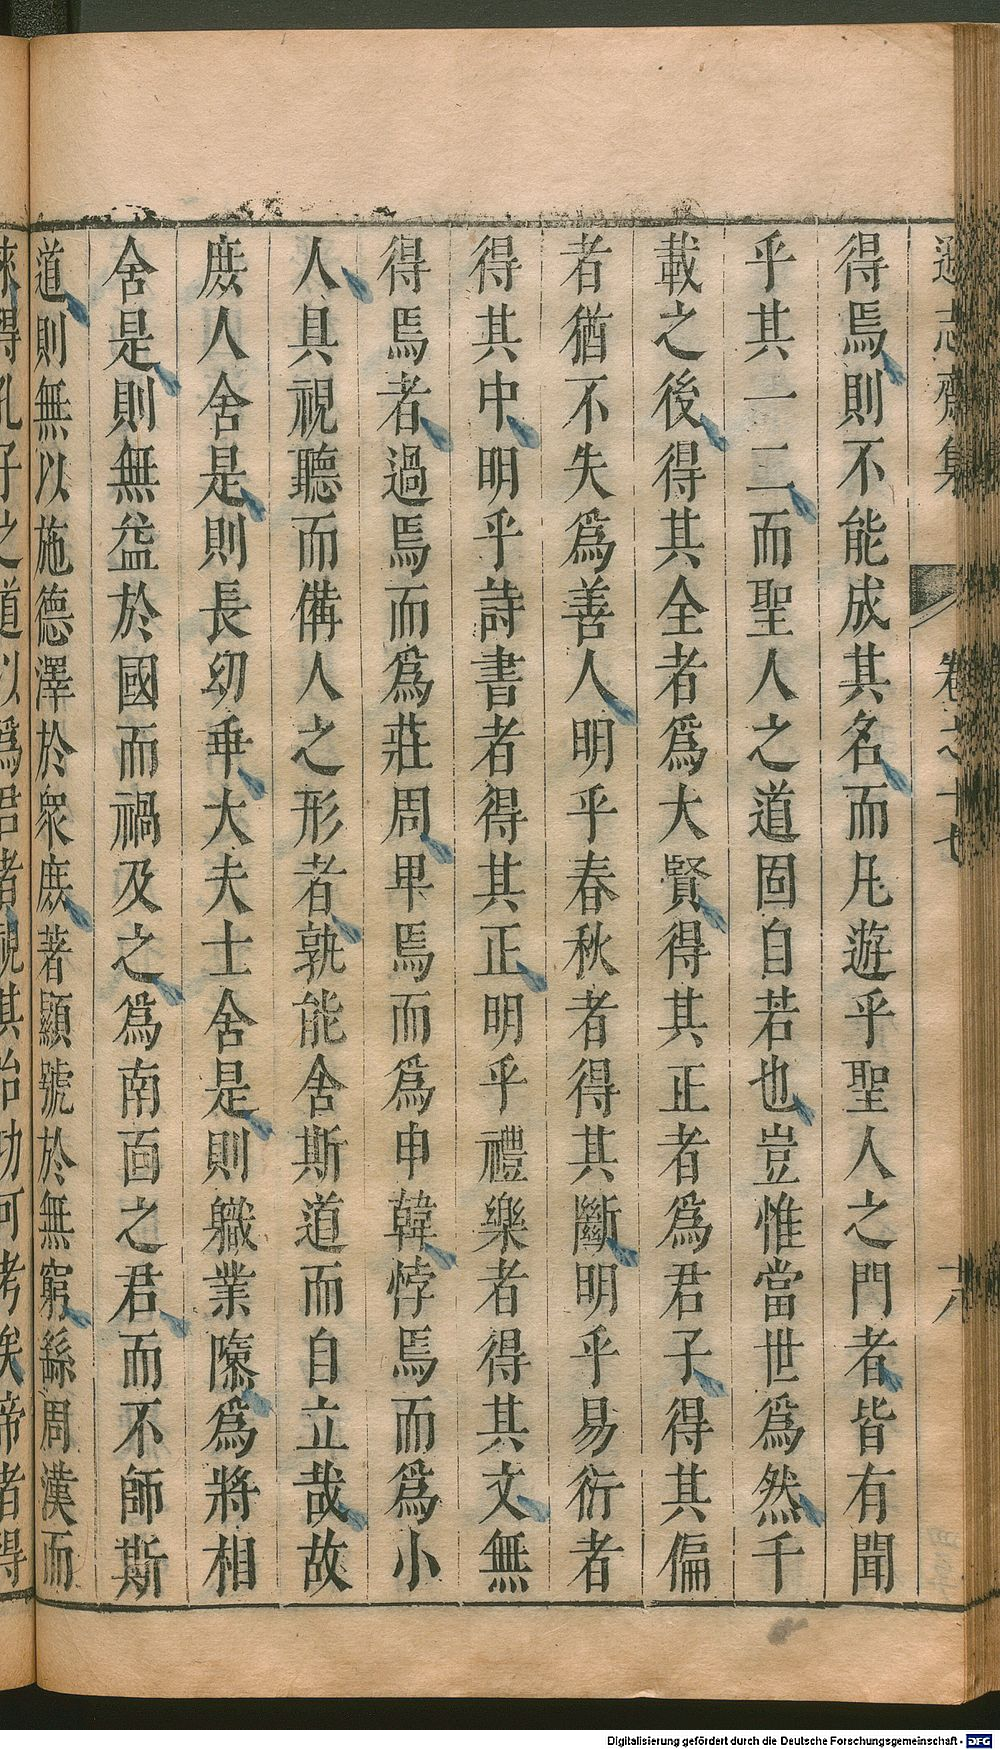 遜志齋集 卷之十七 十八
得焉則不能成其名而凡遊乎聖人之門者皆有聞
乎其一二而聖人之道固自若也豈惟當世爲然千
載之後得其全者爲大賢得其正者爲君子得其偏
者猶不失爲善人明乎春秋者得其斷明乎易衍者
得其中明乎詩書者得其正明乎禮樂者得其文無
得焉者過焉而爲莊周卑焉而爲申韓悖焉而爲小
人具視聽而備人之形者孰能舍斯道而自立哉故
庻人舍是則長幼乖大夫士舍是則職業隳爲將相
舍是則無益於國而禍及之爲南面之君而不師斯
道則無以施德澤於衆庻著顯號於無窮繇周漢而
來得孔子之道以爲君者視其治功可考矣帝者得
Digitalisierung gefördert durch die Deutsche Forschungsgemeinschaft - DFG